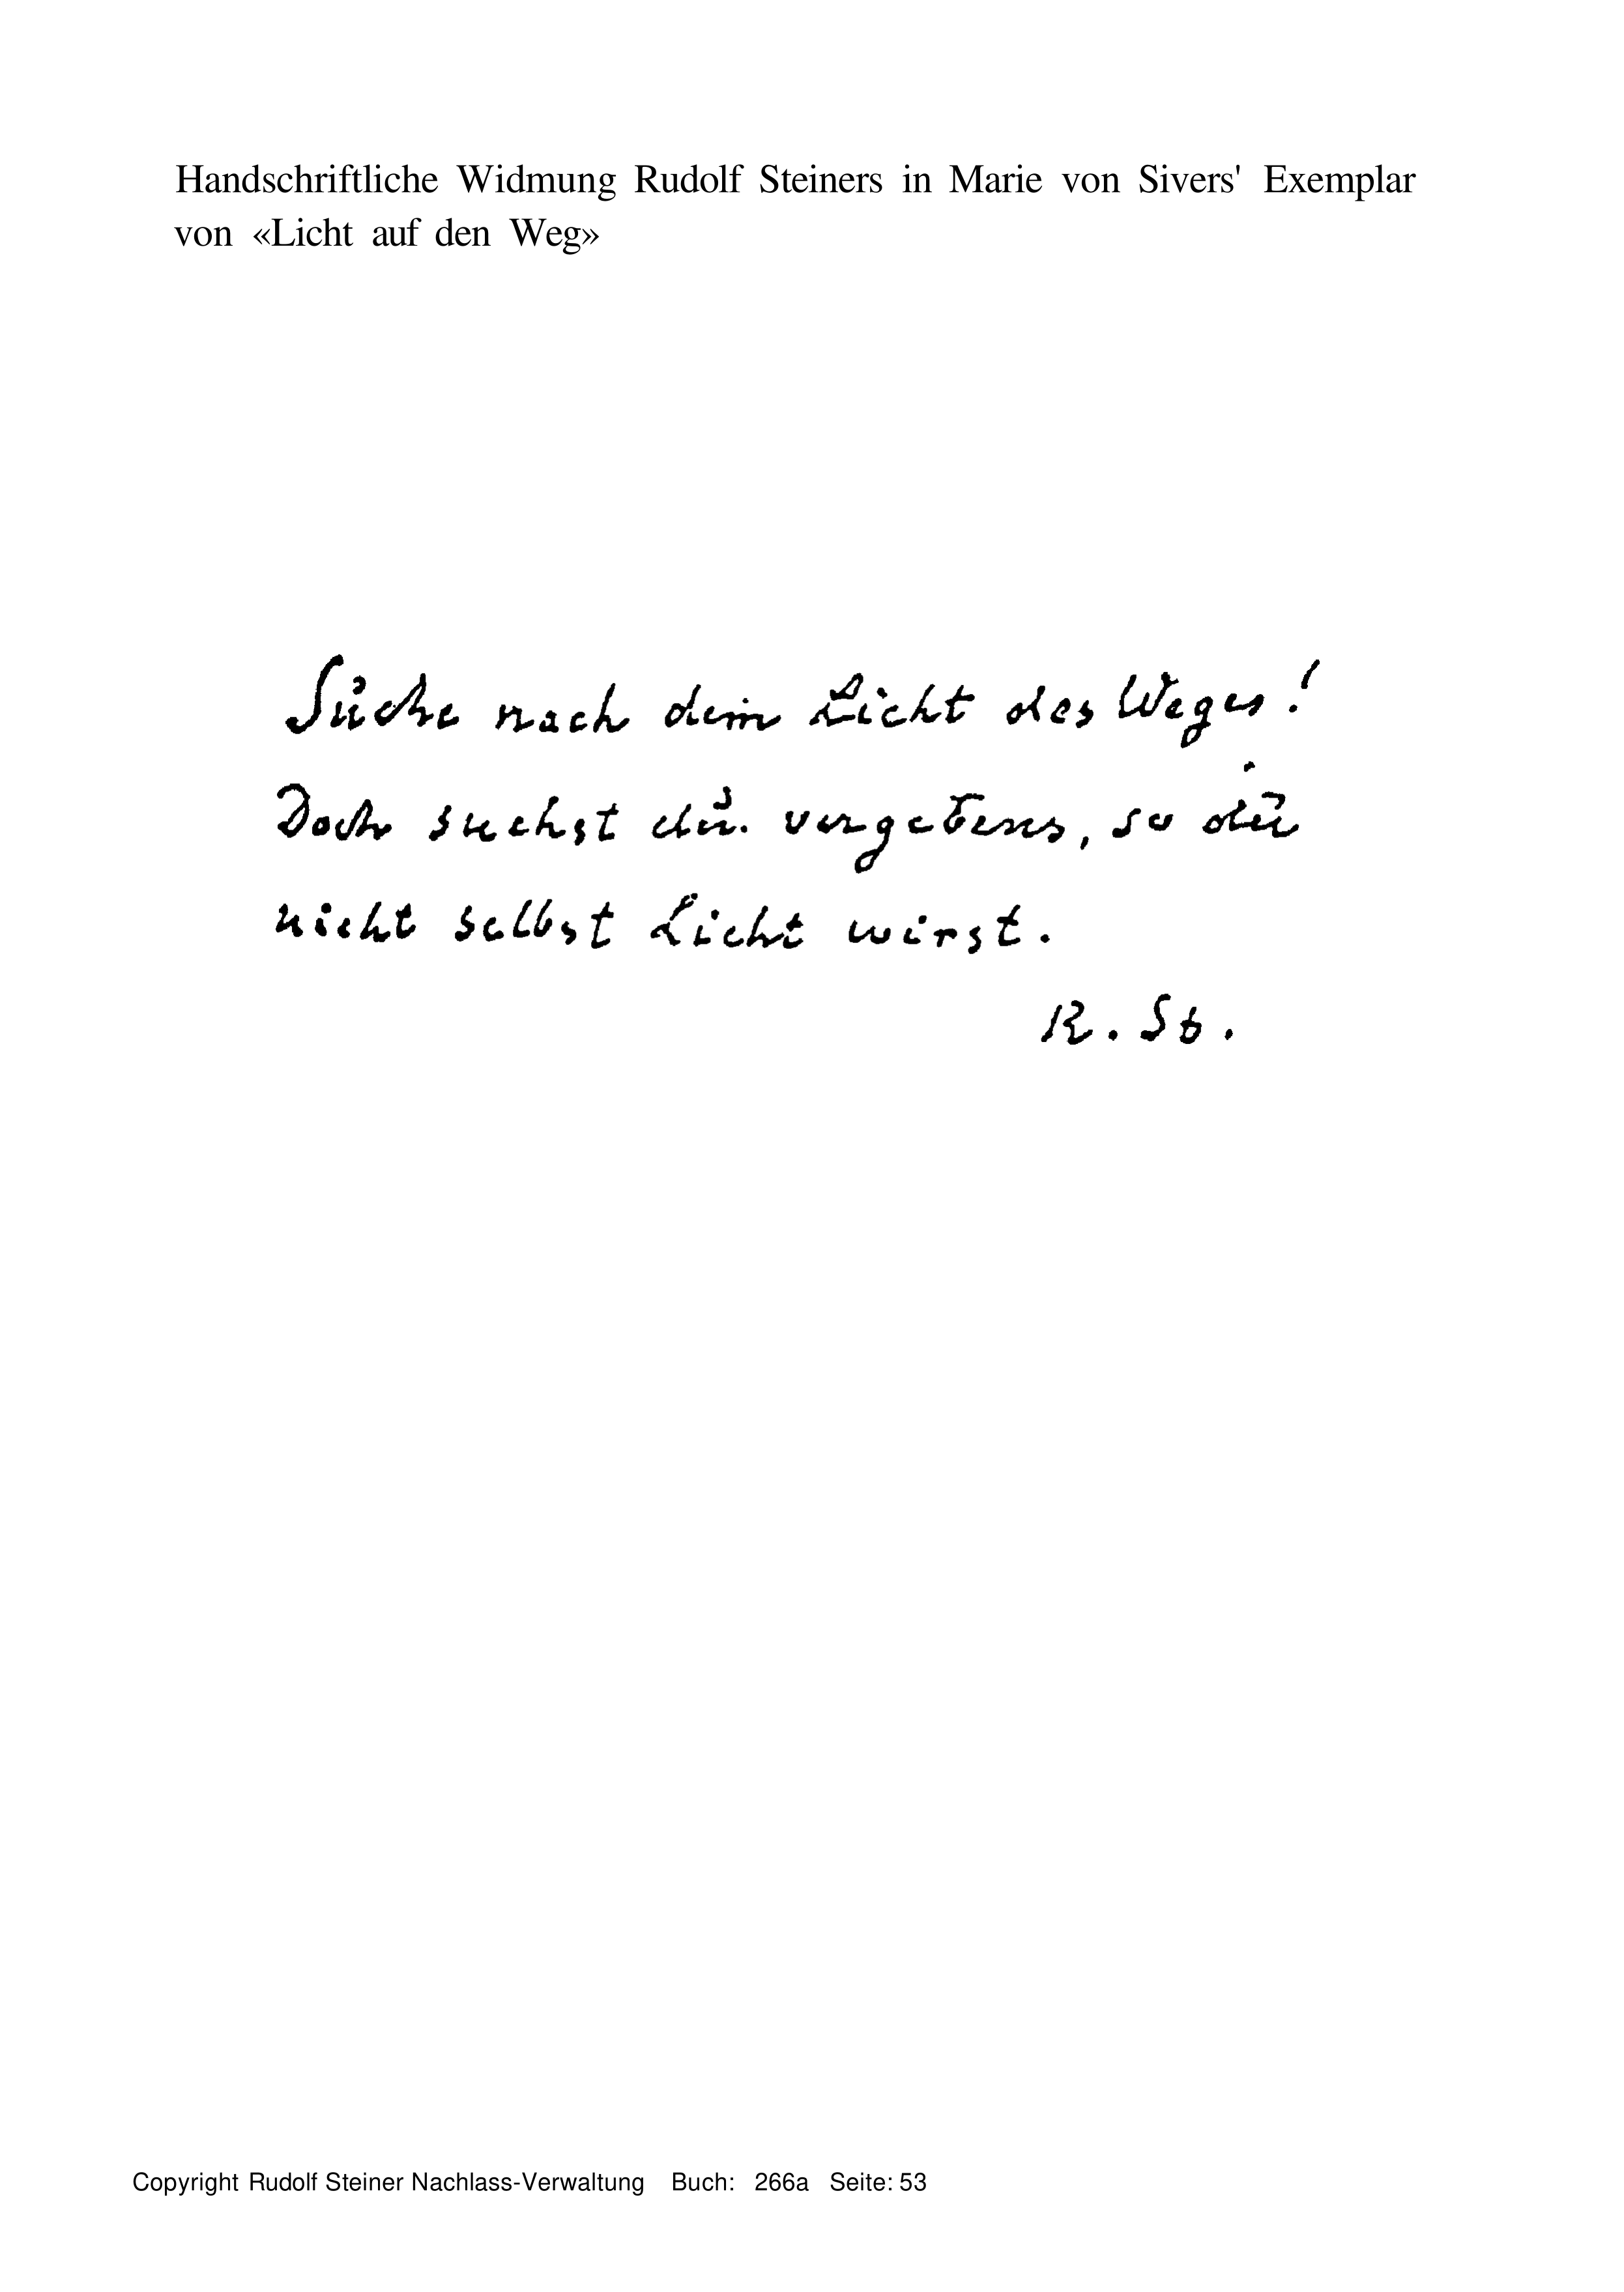 Handschriftliche Widmung Rudolf Steiners in Marie von Sivers' Exemplar
von «Licht auf den Weg»
Suche nach dem Licht des Weges!
Doch suchst du vergebens, so du
nicht selbst Licht wirst.
R. St.
Copyright Rudolf Steiner Nachlass-Verwaltung Buch: 266a Seite: 53